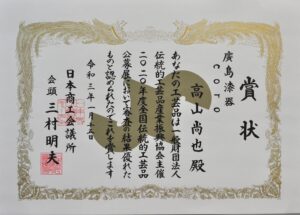 賞状
廣島漆器
COTO
高山尚也殿
あなたの工芸品は一般財団法人
伝統的工芸品産業振興協会主催
2020年度全国伝統的工芸品
公募展において審査の結果優れた
ものと認められたのでこれを賞します
令和三年一月十五日
日本商工会議所
会頭 三村明夫